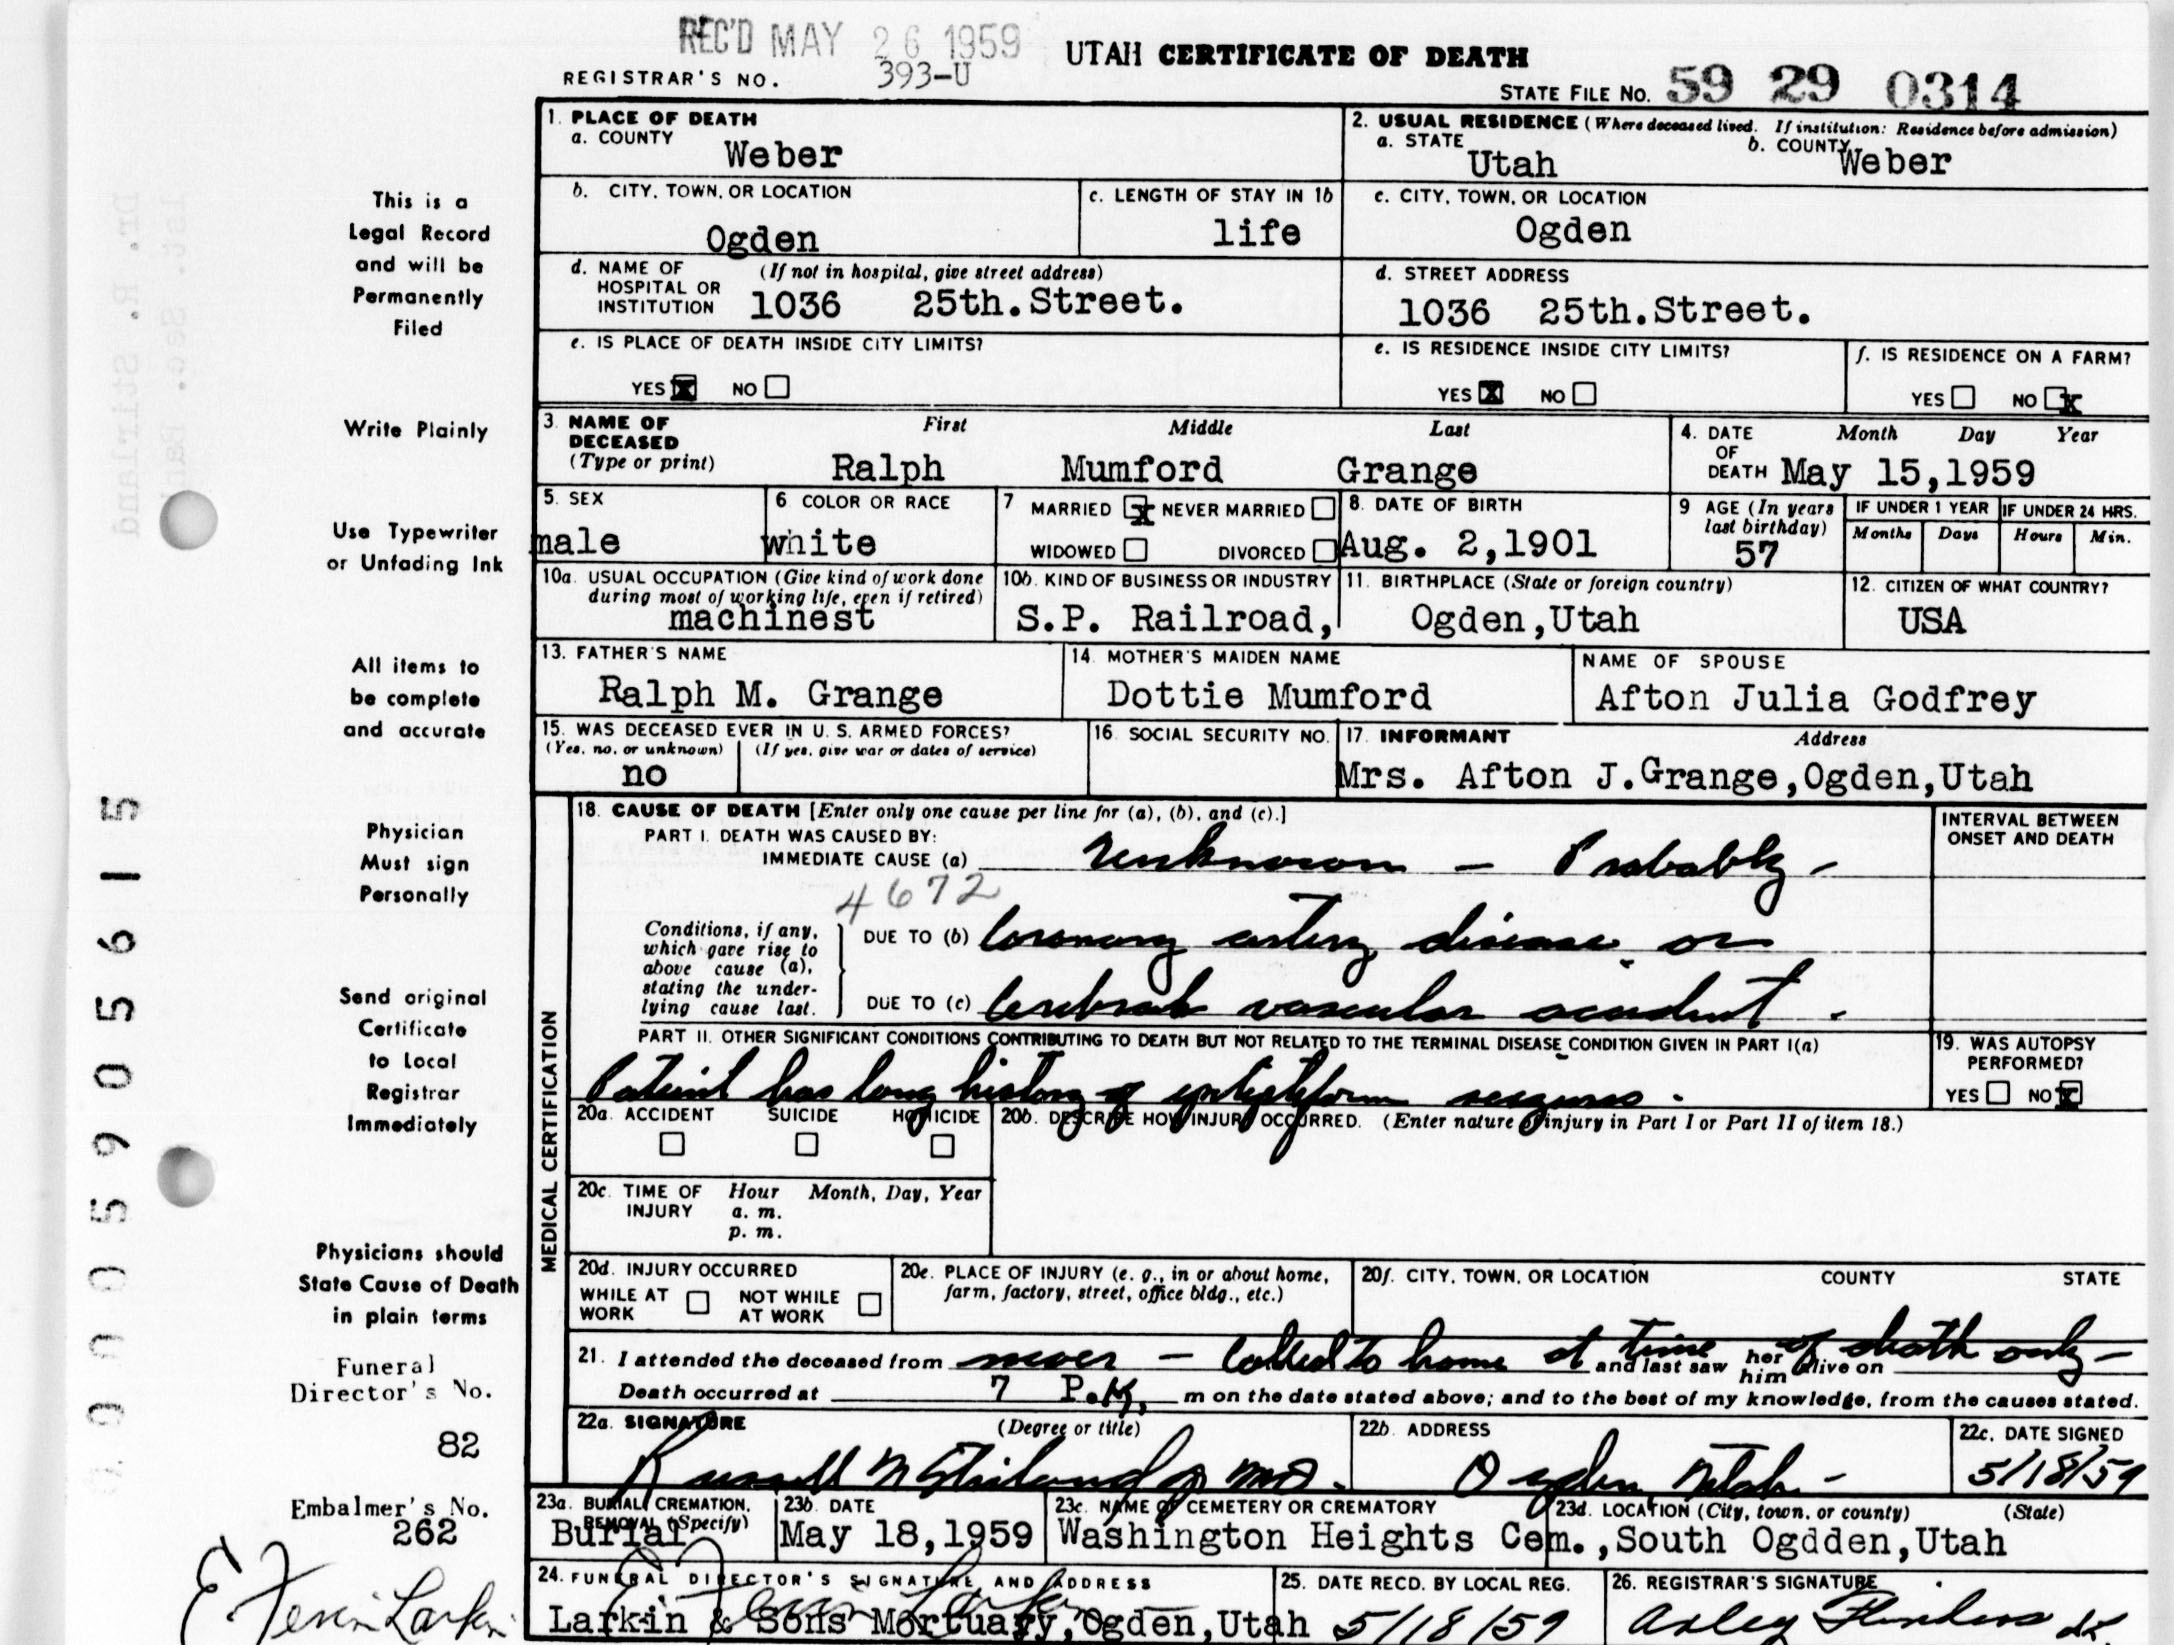 REC'D MAY 26 1959
UTAH CERTIFICATE OF DEATH
REGISTRAR'S NO. 393-U
STATE FILE NO. 59 29 0314
This is a
Legal Record
and will be
Permanently
Filed
Write Plainly
Use Typewriter
or Unfading Ink
All items to
be complete
and accurate
Physician
Must sign
Personally
Send original
Certificate
to Local
Registrar
Immediately
Physicians should
State Cause of Death
in plain terms
Funeral
Director's No.
82
Embalmer's No.
262
1. PLACE OF DEATH
a. COUNTY
Weber
2. USUAL RESIDENCE (Where deceased lived. If institution: Residence before admission)
a. STATE
Utah
b. COUNTY
Weber
b. CITY, TOWN, OR LOCATION
Ogden
c. LENGTH OF STAY IN 1b
life
c. CITY, TOWN, OR LOCATION
Ogden
d. NAME OF HOSPITAL OR INSTITUTION (If not in hospital, give street address)
1036 25th.Street.
d. STREET ADDRESS
1036 25th.Street.
e. IS PLACE OF DEATH INSIDE CITY LIMITS?
YES X NO
e. IS RESIDENCE INSIDE CITY LIMITS?
YES X NO
f. IS RESIDENCE ON A FARM?
YES NO X
3. NAME OF DECEASED (Type or print)
First Middle Last
Ralph Mumford Grange
4. DATE OF DEATH Month Day Year
May 15,1959
5. SEX
male
6 COLOR OR RACE
white
7 MARRIED X NEVER MARRIED
WIDOWED DIVORCED
8. DATE OF BIRTH
Aug. 2,1901
9 AGE (In years last birthday)
57
IF UNDER 1 YEAR
Months Days
IF UNDER 24 HRS.
Hours Min.
10a. USUAL OCCUPATION (Give kind of work done during most of working life, even if retired)
machinest
10b. KIND OF BUSINESS OR INDUSTRY
S.P. Railroad,
11. BIRTHPLACE (State or foreign country)
Ogden,Utah
12. CITIZEN OF WHAT COUNTRY?
USA
13. FATHER'S NAME
Ralph M. Grange
14. MOTHER'S MAIDEN NAME
Dottie Mumford
NAME OF SPOUSE
Afton Julia Godfrey
15. WAS DECEASED EVER IN U. S. ARMED FORCES?
(Yes, no, or unknown) (If yes, give war or dates of service)
no
16. SOCIAL SECURITY NO.
17. INFORMANT Address
Mrs. Afton J.Grange,Ogden,Utah
MEDICAL CERTIFICATION
18. CAUSE OF DEATH [Enter only one cause per line for (a), (b), and (c).]
PART I. DEATH WAS CAUSED BY:
IMMEDIATE CAUSE (a) Unknown - Probably -
4672
Conditions, if any, which gave rise to above cause (a), stating the underlying cause last.
DUE TO (b) Coronary artery disease or
DUE TO (c) Cerebral vascular accident.
INTERVAL BETWEEN
ONSET AND DEATH
PART II. OTHER SIGNIFICANT CONDITIONS CONTRIBUTING TO DEATH BUT NOT RELATED TO THE TERMINAL DISEASE CONDITION GIVEN IN PART I(a)
Patient has long history of epileptiform seizures.
19. WAS AUTOPSY PERFORMED?
YES NO X
20a. ACCIDENT SUICIDE HOMICIDE
20b. DESCRIBE HOW INJURY OCCURRED. (Enter nature of injury in Part I or Part II of item 18.)
20c. TIME OF INJURY Hour Month, Day, Year
a. m.
p. m.
20d. INJURY OCCURRED
WHILE AT WORK NOT WHILE AT WORK
20e. PLACE OF INJURY (e. g., in or about home, farm, factory, street, office bldg., etc.)
20f. CITY, TOWN, OR LOCATION COUNTY STATE
21. I attended the deceased from never - Called to home at time of death only -
and last saw her him alive on
Death occurred at 7 P.M. m on the date stated above; and to the best of my knowledge, from the causes stated.
22a. SIGNATURE (Degree or title)
Russell N Stirland Jr MD.
22b. ADDRESS
Ogden Utah -
22c. DATE SIGNED
5/18/59
23a. BURIAL, CREMATION, REMOVAL (Specify)
Burial
23b. DATE
May 18,1959
23c. NAME OF CEMETERY OR CREMATORY
Washington Heights Cem.,
23d. LOCATION (City, town, or county) (State)
South Ogdden,Utah
24. FUNERAL DIRECTOR'S SIGNATURE AND ADDRESS
Larkin & Sons Mortuary,Ogden,Utah
25. DATE RECD. BY LOCAL REG.
5/18/59
26. REGISTRAR'S SIGNATURE
Larkin
0005905615